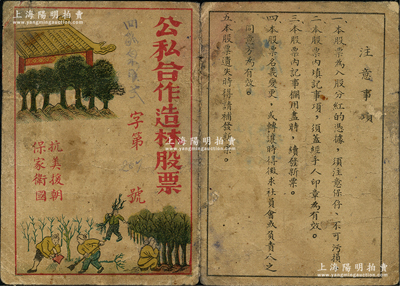 上海陽明拍賣
公私合作造林股票
字第
號
抗美援朝
保家衛國
注意事項
一 本股票為入股分紅的憑據，須注意保存，不可污損
二 本股票內填記事項，須蓋經手人印章為有效。
三 本股票內記事欄用盡時，續發新票。
四 本股票名義變更，或轉讓時得徵求社員會或負責人之
同意方為有效。
五 本股票遺失時得請補發新票。
上海陽明拍賣
www.ymauction.com